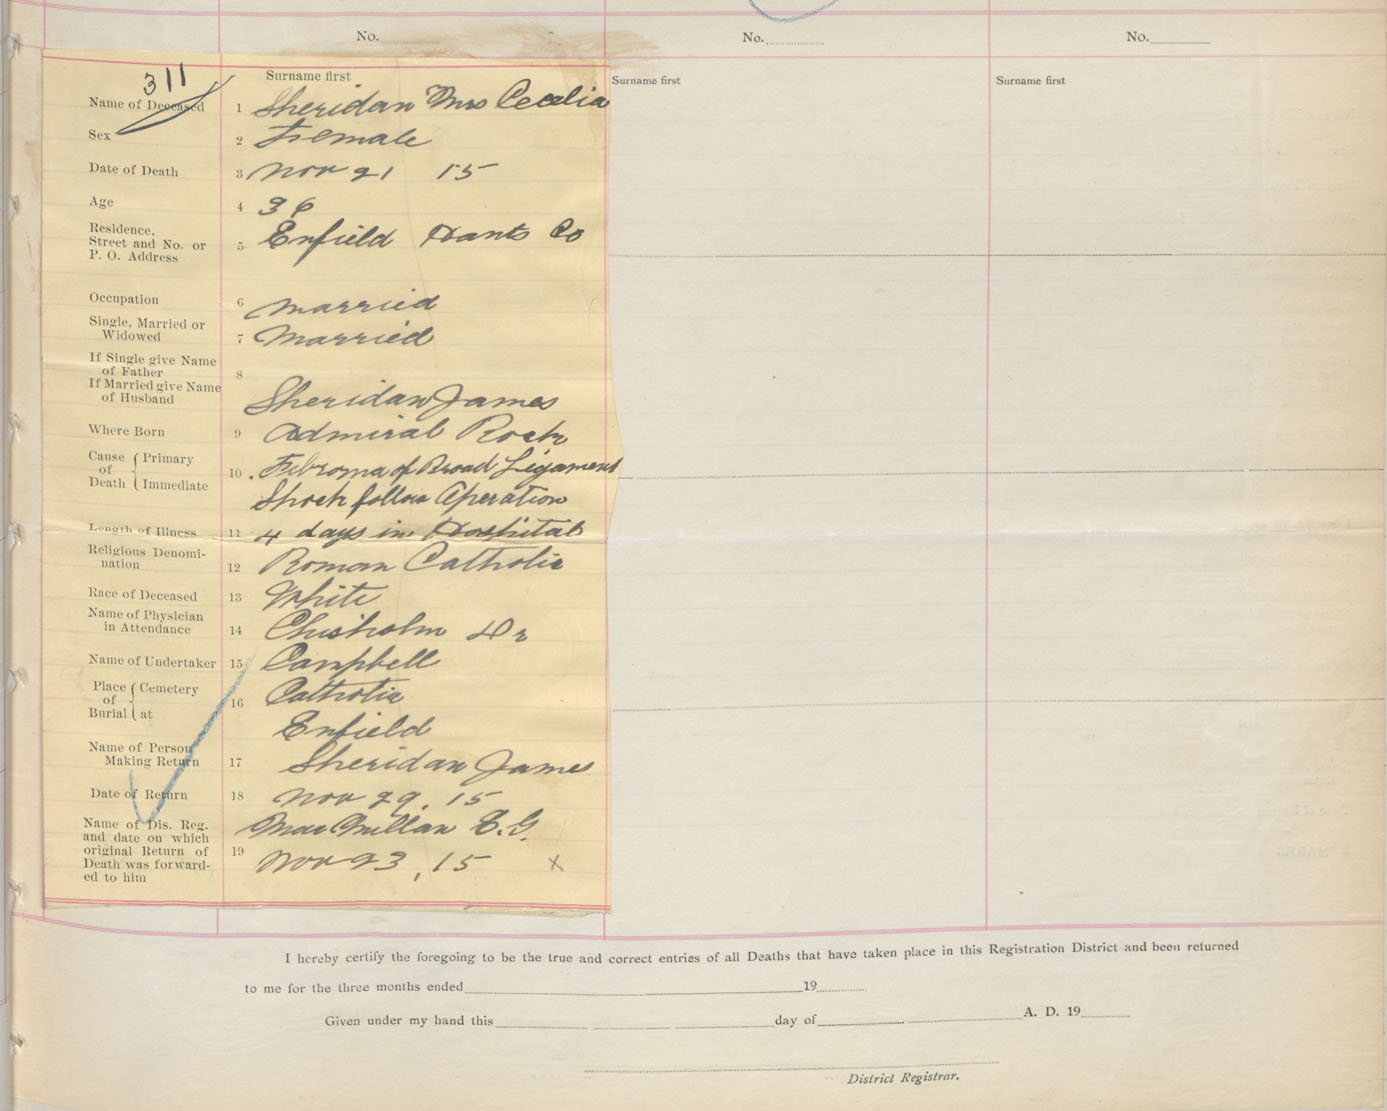 No. No. No.
311
Surname first Surname first Surname first
Name of Deceased 1 Sheridan Mrs Cecelia
Sex 2 Female
Date of Death 3 Nov 21 15
Age 4 36
Residence,
Street and No. or 5 Enfield Hants Co
P. O. Address
Occupation 6 married
Single, Married or
Widowed 7 Married
If Single give Name
of Father 8
If Married give Name
of Husband Sheridan James
Where Born 9 Admiral Rock
Cause of Death { Primary 10 Fibroma of Broad Ligament
Immediate Shock follow Operation
Length of Illness 11 4 days in Hospital
Religious Denomi-
nation 12 Roman Catholic
Race of Deceased 13 White
Name of Physician
in Attendance 14 Chisholm Dr
Name of Undertaker 15 Campbell
Place of Burial { Cemetery 16 Catholic
at Enfield
Name of Person
Making Return 17 Sheridan James
Date of Return 18 Nov 29, 15
Name of Dis. Reg. MacMillan E.G.
and date on which
original Return of 19
Death was forward- Nov 23, 15 x
ed to him
I hereby certify the foregoing to be the true and correct entries of all Deaths that have taken place in this Registration District and been returned
to me for the three months ended 19
Given under my hand this day of A. D. 19
District Registrar.